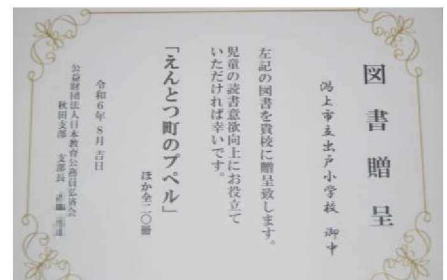 図書贈呈
潟上市立出戸小学校 御中
左記の図書を貴校に贈呈致します。
児童の読書意欲向上にお役立て
いただければ幸いです。
「えんとつ町のプペル」
ほか全二〇冊
令和6年8月吉日
公益財団法人日本教育公務員弘済会
秋田支部 支部長